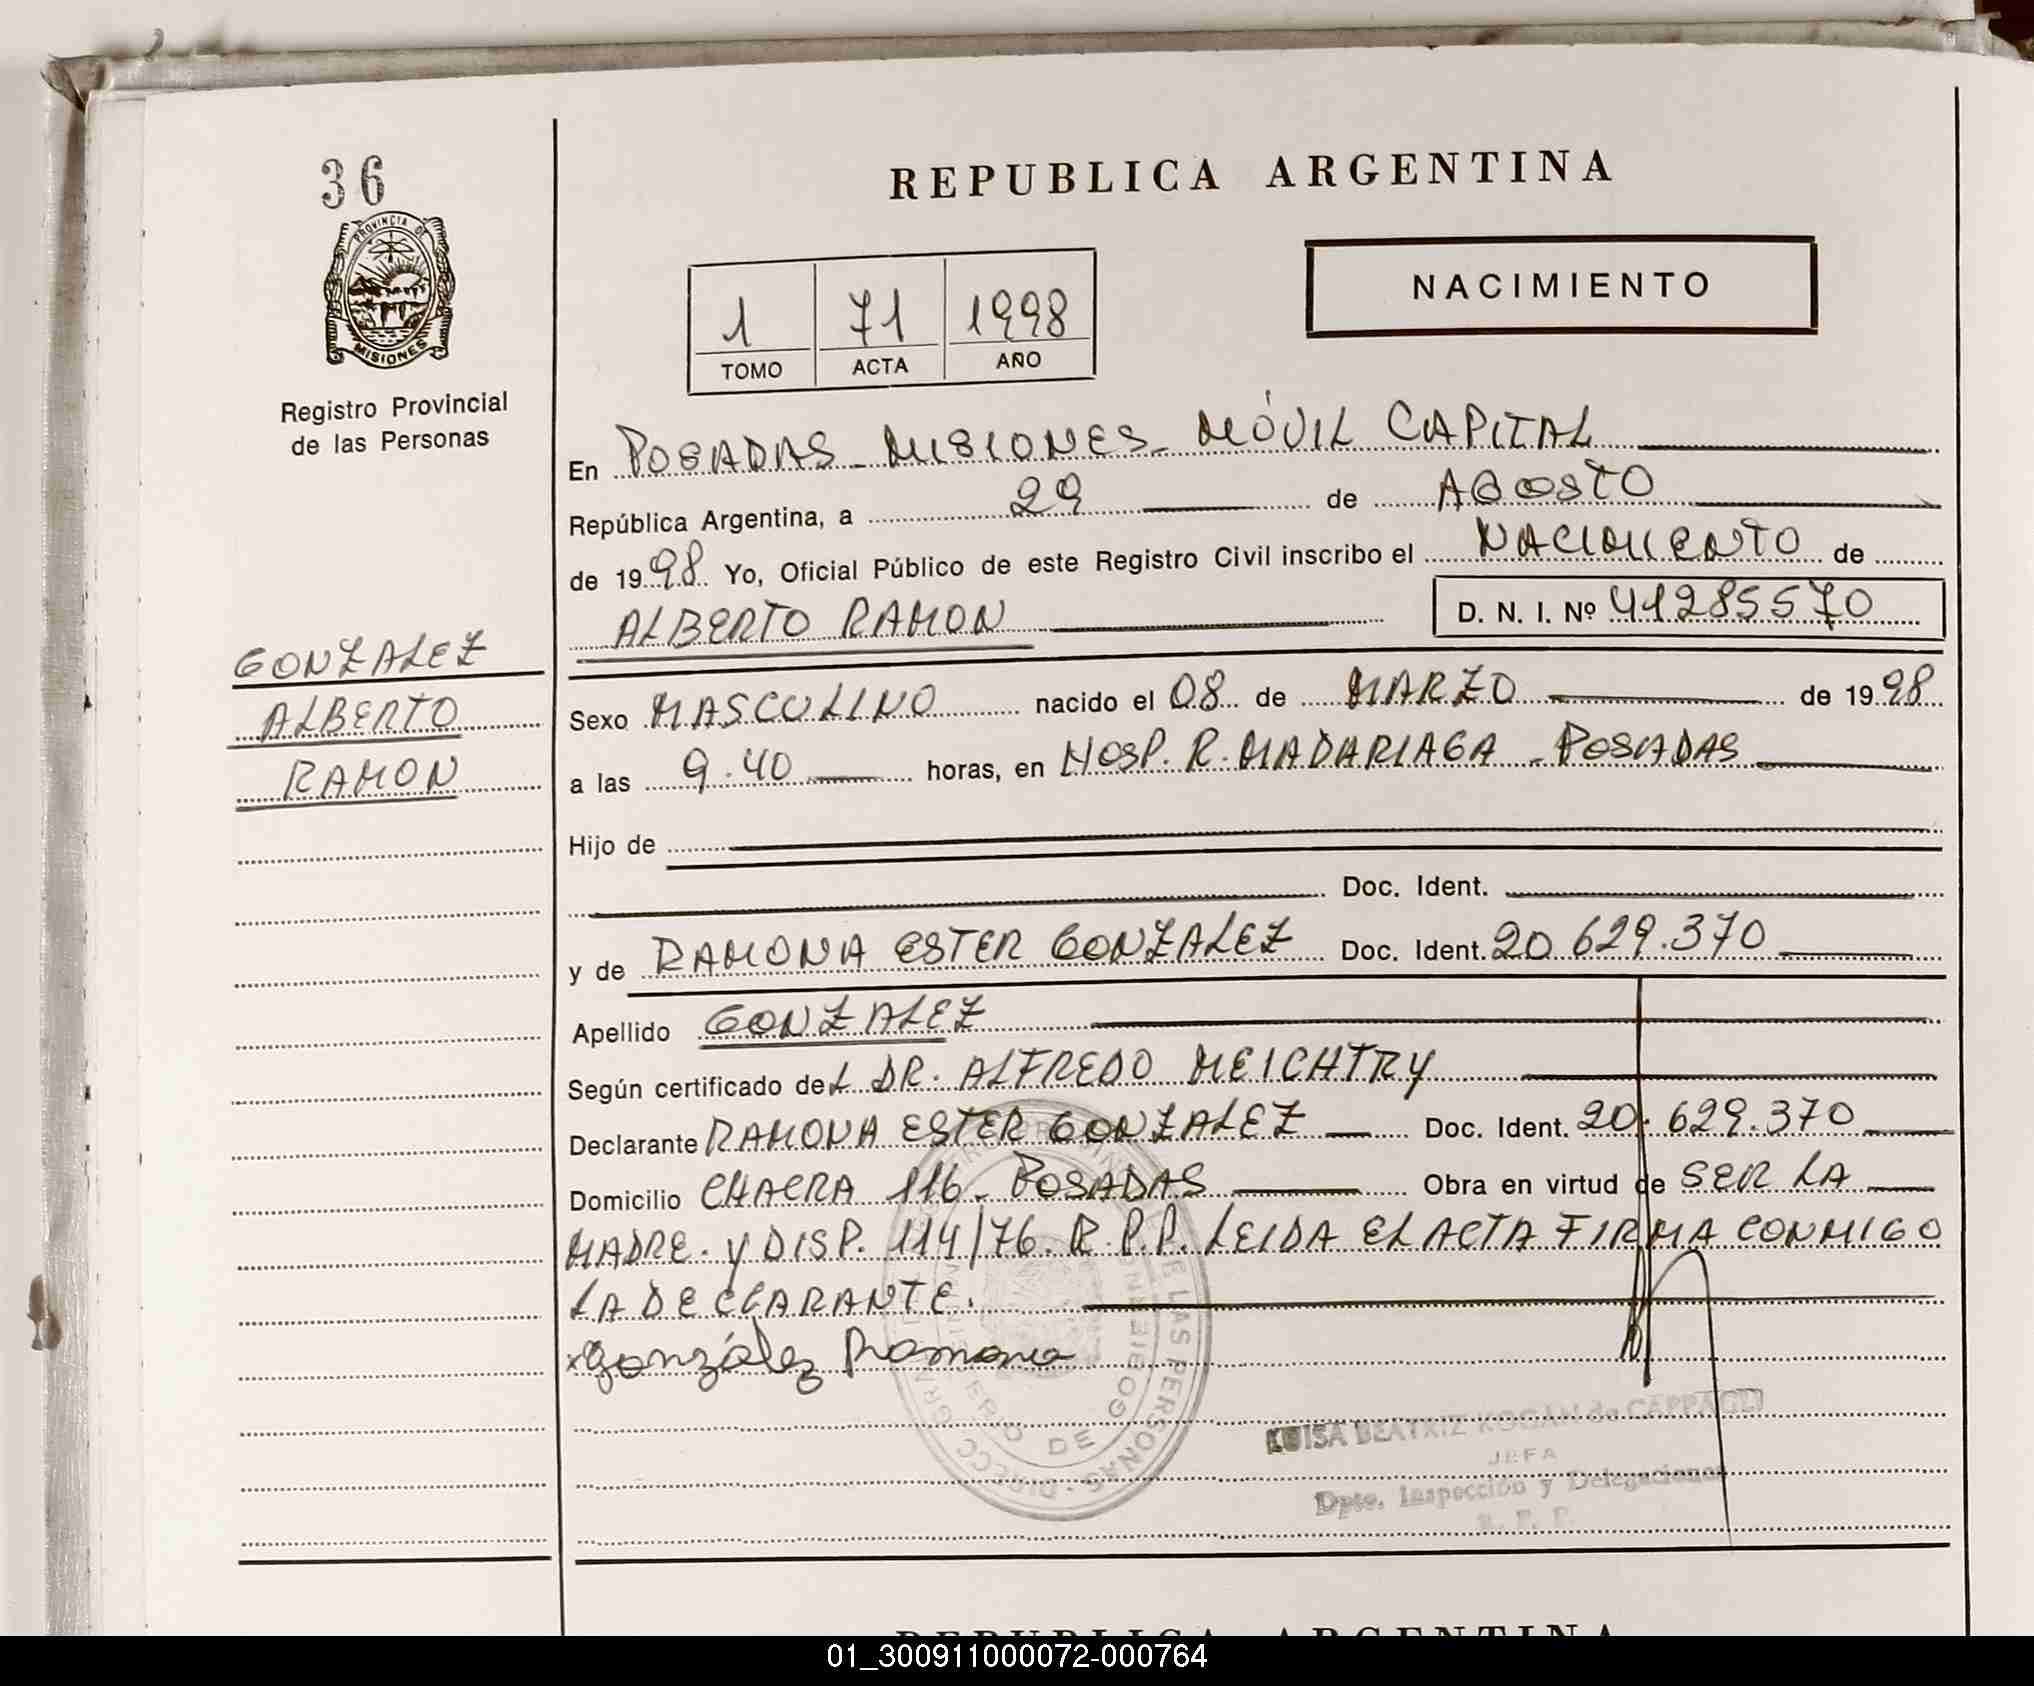 36
PROVINCIA DE
MISIONES
Registro Provincial
de las Personas
GONZALEZ
ALBERTO
RAMON
REPUBLICA ARGENTINA
NACIMIENTO
1 71 1998
TOMO ACTA AÑO
En POSADAS - MISIONES - MÓVIL CAPITAL
República Argentina, a 29 de AGOSTO
de 1998 Yo, Oficial Público de este Registro Civil inscribo el NACIMIENTO de
ALBERTO RAMON D. N. I. Nº 41285570
Sexo MASCULINO nacido el 08 de MARZO de 1998
a las 9.40 horas, en HOSP. R. MADARIAGA - POSADAS
Hijo de
Doc. Ident.
y de RAMONA ESTER GONZALEZ Doc. Ident. 20.629.370
Apellido GONZALEZ
Según certificado del DR. ALFREDO MEICHTRY
Declarante RAMONA ESTER GONZALEZ Doc. Ident. 20.629.370
Domicilio CHACRA 116 - POSADAS Obra en virtud de SER LA
MADRE. Y DISP. 114/76. R.P.P. LEIDA EL ACTA FIRMA CONMIGO
LA DECLARANTE.
x González Ramona
LUISA BEATRIZ KOGAN de CAPPAGLI
JEFA
Dpto. Inspección y Delegaciones
R. P. P.
DE LAS PERSONAS - DIRECC
MINISTERIO DE GOBIERNO
REPUBLICA ARGENTINA
01_300911000072-000764